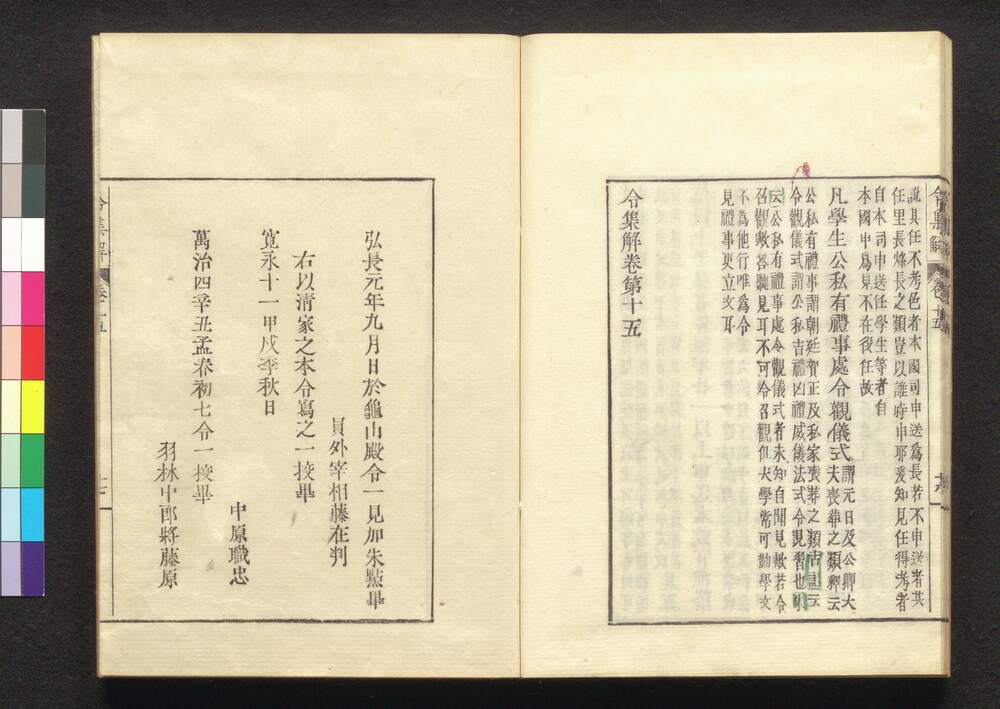 令集解 卷十五
説其任不考色者本國司申送爲長若不申送者其
任里長烽長之類豈以誰時申耶爰知見任得考者
自本司申送任學生等者自
本國中爲見不在役任故
凡學生公私有禮事處令觀儀式謂元日及公卿大
夫喪葬之類釋云
公私有禮事謂朝廷賀正及私家喪葬之類古記云
令觀儀式謂公私吉禮凶禮威儀法式令見習也
云公私有禮事處令觀儀式者未知自開見歟若令
召觀歟答聽見耳不可令召觀但大學常可勸學文
不爲他行唯爲令
見禮事更立文耳
令集解卷第十五
弘長元年九月日於龜山殿令一見加朱點畢
員外宰相藤在判
右以清家之本令寫之一挍畢
寛永十一甲戌季秋日
中原職忠
萬治四辛丑孟春初七令一挍畢
羽林中郎將藤原
令集解